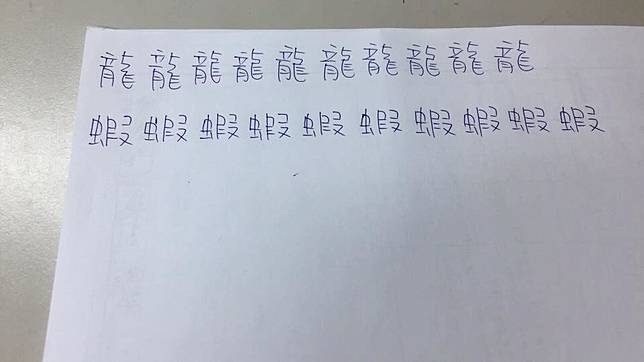 龍龍龍龍龍龍龍龍龍龍
蝦蝦蝦蝦蝦蝦蝦蝦蝦蝦